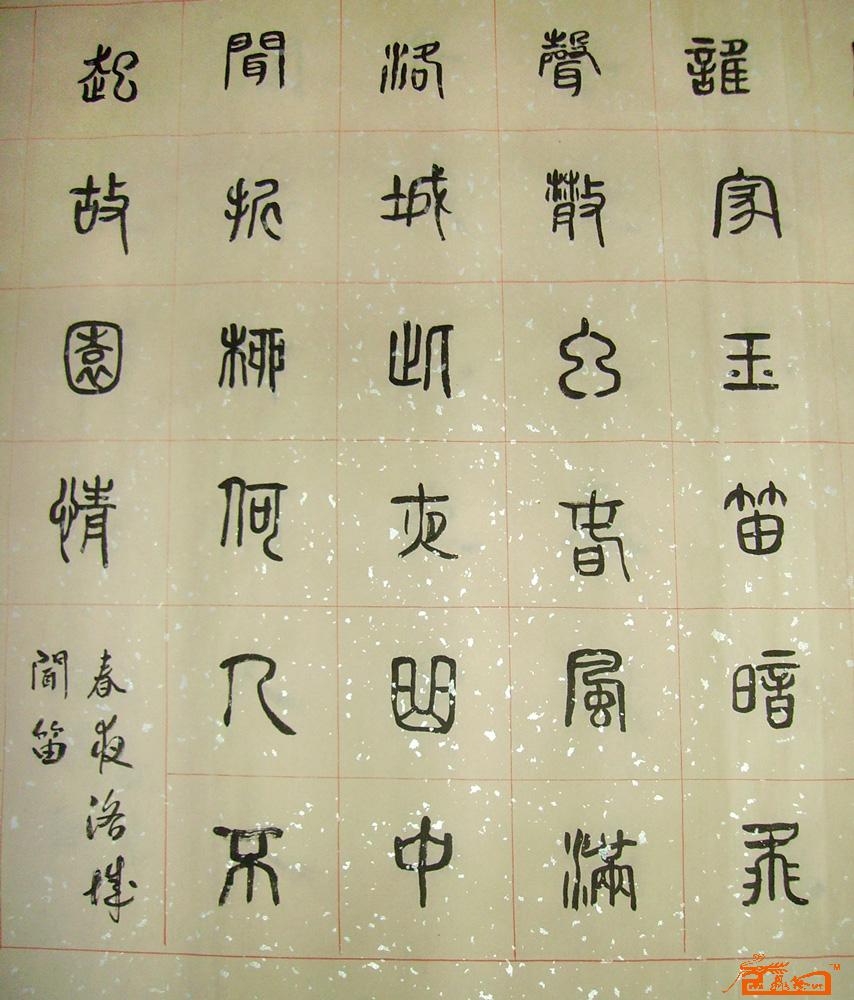 誰家玉笛暗飛
聲散入春風滿
洛城此夜曲中
聞折柳何人不
起故園情
春夜洛城
聞笛